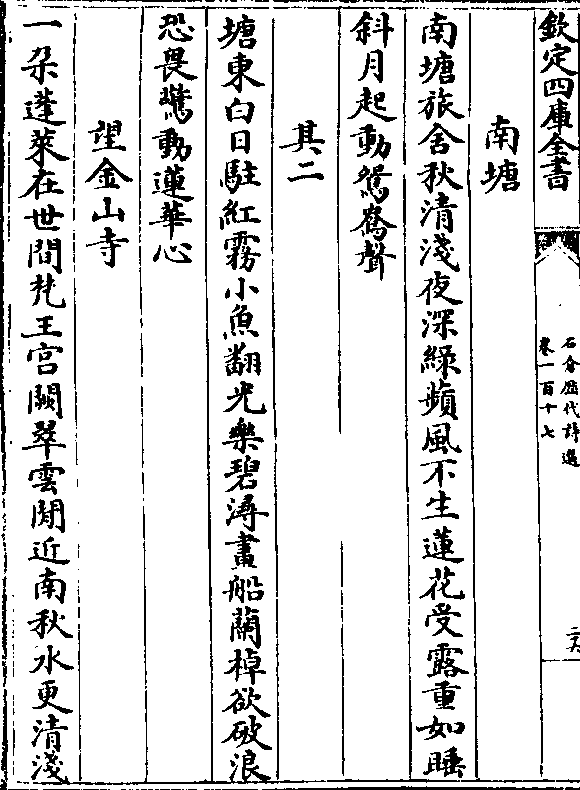 欽定四庫全書
石倉歷代詩選
卷一百十七
南塘
南塘旅舍秋清淺夜深綠蘋風不生蓮花受露重如睡
斜月起動鴛鴦聲
其二
塘東白日駐紅霧小魚翻光樂碧潯畫船蘭棹欲破浪
恐畏驚動蓮華心
望金山寺
一朵蓬萊在世間梵王宮闕翠雲閒近南秋水更清淺